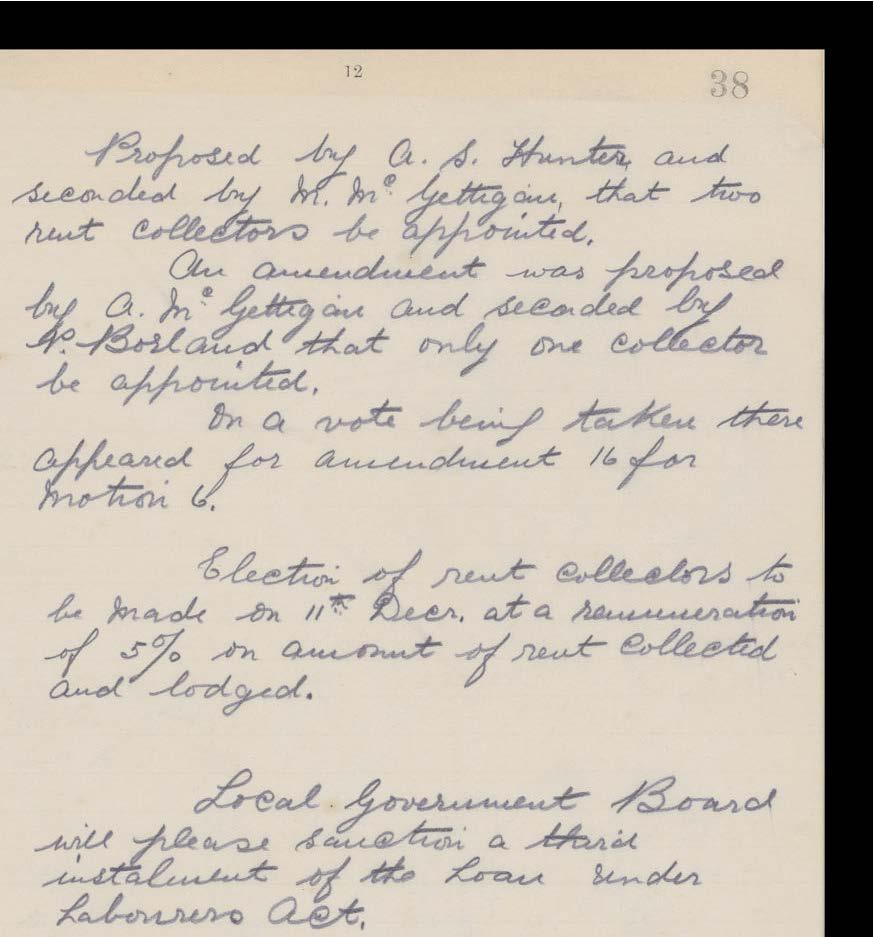 12
38
Proposed by A. S. Hunter, and
seconded by M. Mc Gettigan, that two
rent collectors be appointed.
An amendment was proposed
by A. Mc Gettigan and seconded by
P. Borland that only one collector
be appointed.
On a vote being taken there
appeared for amendment 16 for
motion 6.
Election of rent collectors to
be made on 11th Decr. at a remuneration
of 5% on amount of rent collected
and lodged.
Local Government Board
will please sanction a third
instalment of the Loan under
Labourers Act.